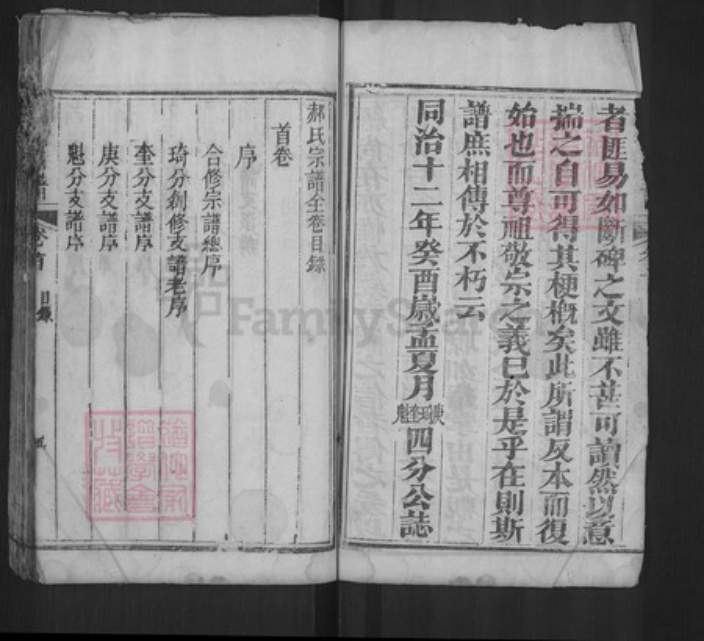 者匪易如斷碑之文雖不甚可讀然以意
揣之自可得其梗概矣此所謂反本而復
始也而尊祖敬宗之義已於是乎在則斯
譜庶相傳於不朽云
同治十二年癸酉歲孟夏月庚琦奎魁四分公誌
郝氏宗譜全卷目錄
首卷
序
合修宗譜總序
琦分創修支譜老序
奎分支譜序
庚分支譜序
魁分支譜序
卷首 目錄
FamilySearch